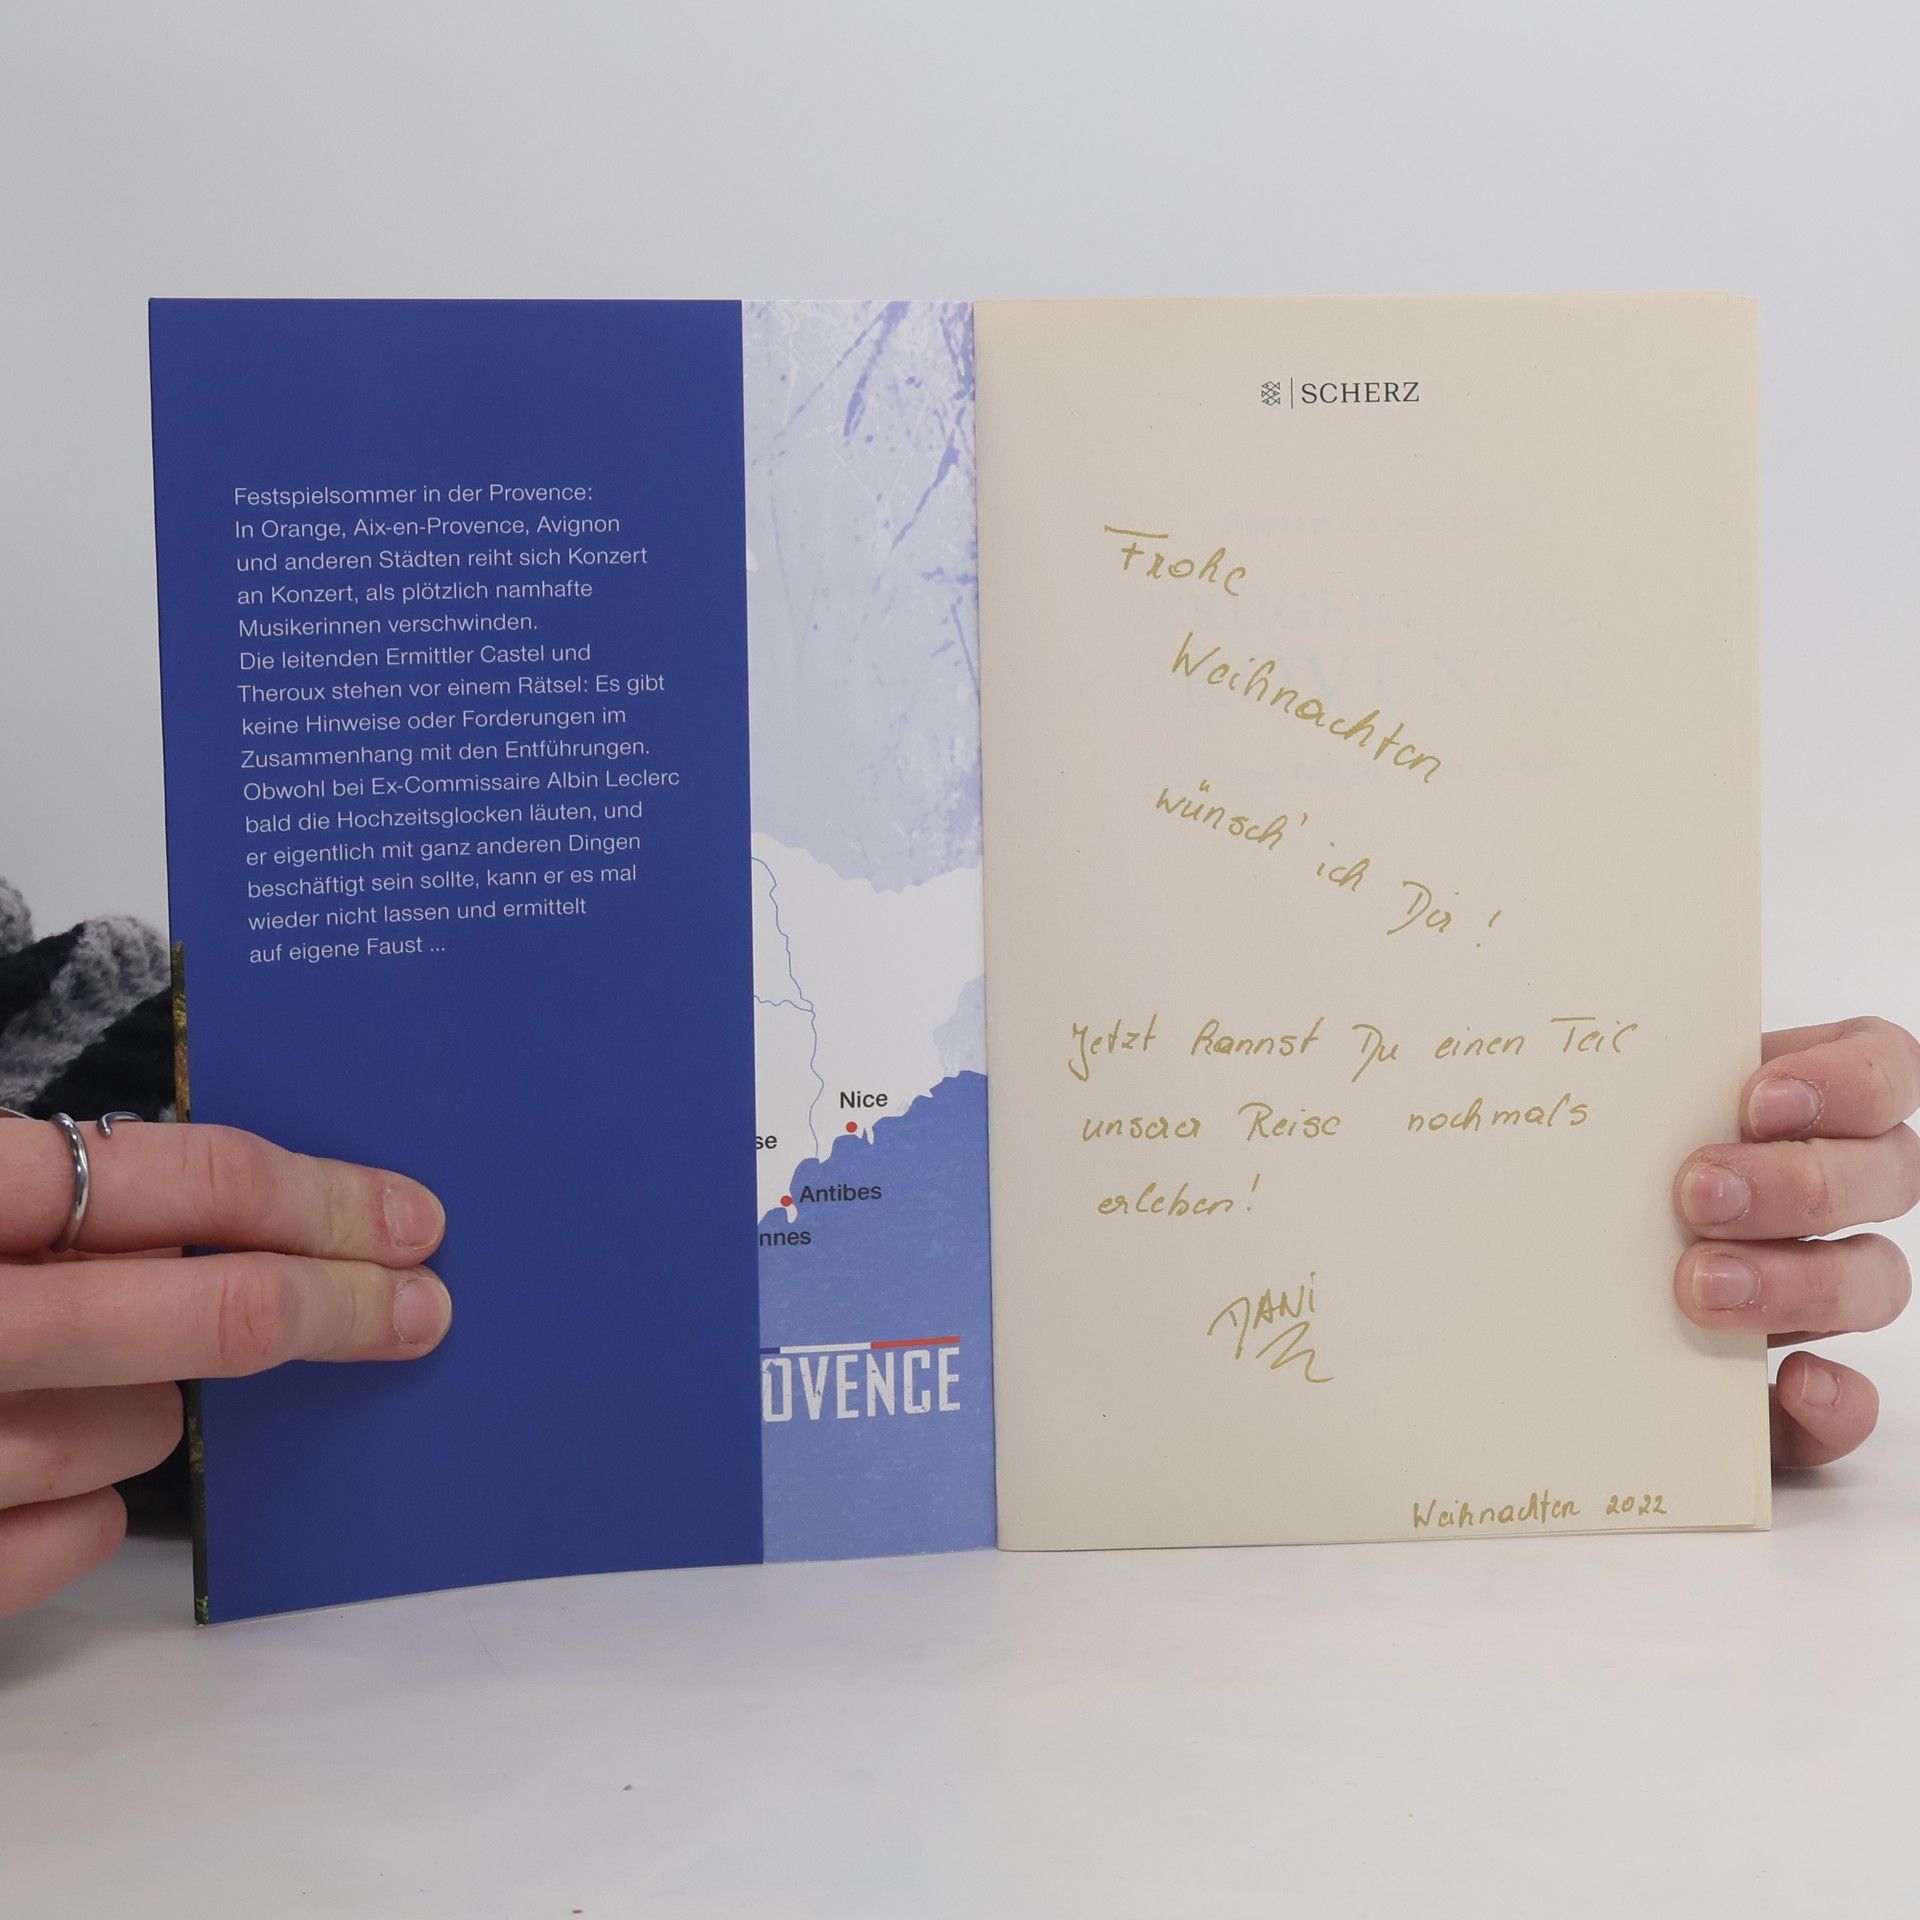 Festspielsommer in der Provence:
In Orange, Aix-en-Provence, Avignon
und anderen Städten reiht sich Konzert
an Konzert, als plötzlich namhafte
Musikerinnen verschwinden.
Die leitenden Ermittler Castel und
Theroux stehen vor einem Rätsel: Es gibt
keine Hinweise oder Forderungen im
Zusammenhang mit den Entführungen.
Obwohl bei Ex-Commissaire Albin Leclerc
bald die Hochzeitsglocken läuten, und
er eigentlich mit ganz anderen Dingen
beschäftigt sein sollte, kann er es mal
wieder nicht lassen und ermittelt
auf eigene Faust ...
Nice
se
Antibes
nnes
OVENCE
SCHERZ
Frohe
Weihnachten
wünsch' ich Dir!
Jetzt kannst Du einen Teil
unserer Reise nochmals
erleben!
DANi
Weihnachten 2022